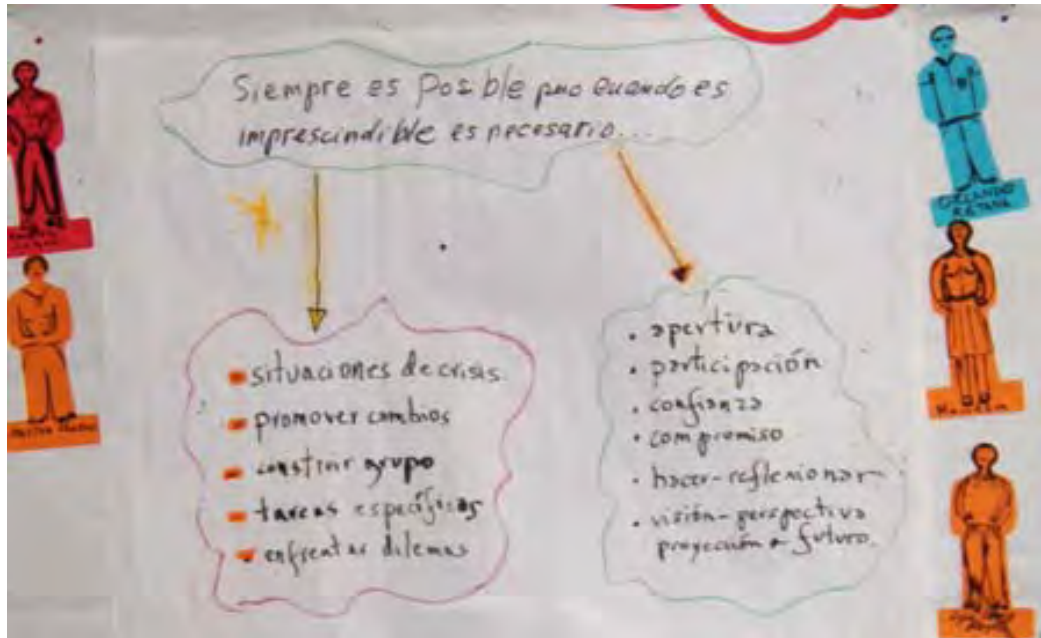 Siempre es Posible pero cuando es
imprescindible es necesario...
situaciones de crisis.
promover cambios
construir grupo
tareas específicas
enfrentar dilemas
• apertura
• participación
• confianza
• compromiso
• hacer-reflexionar
• visión-perspectiva
proyección a futuro.
ORLANDO
RETANA